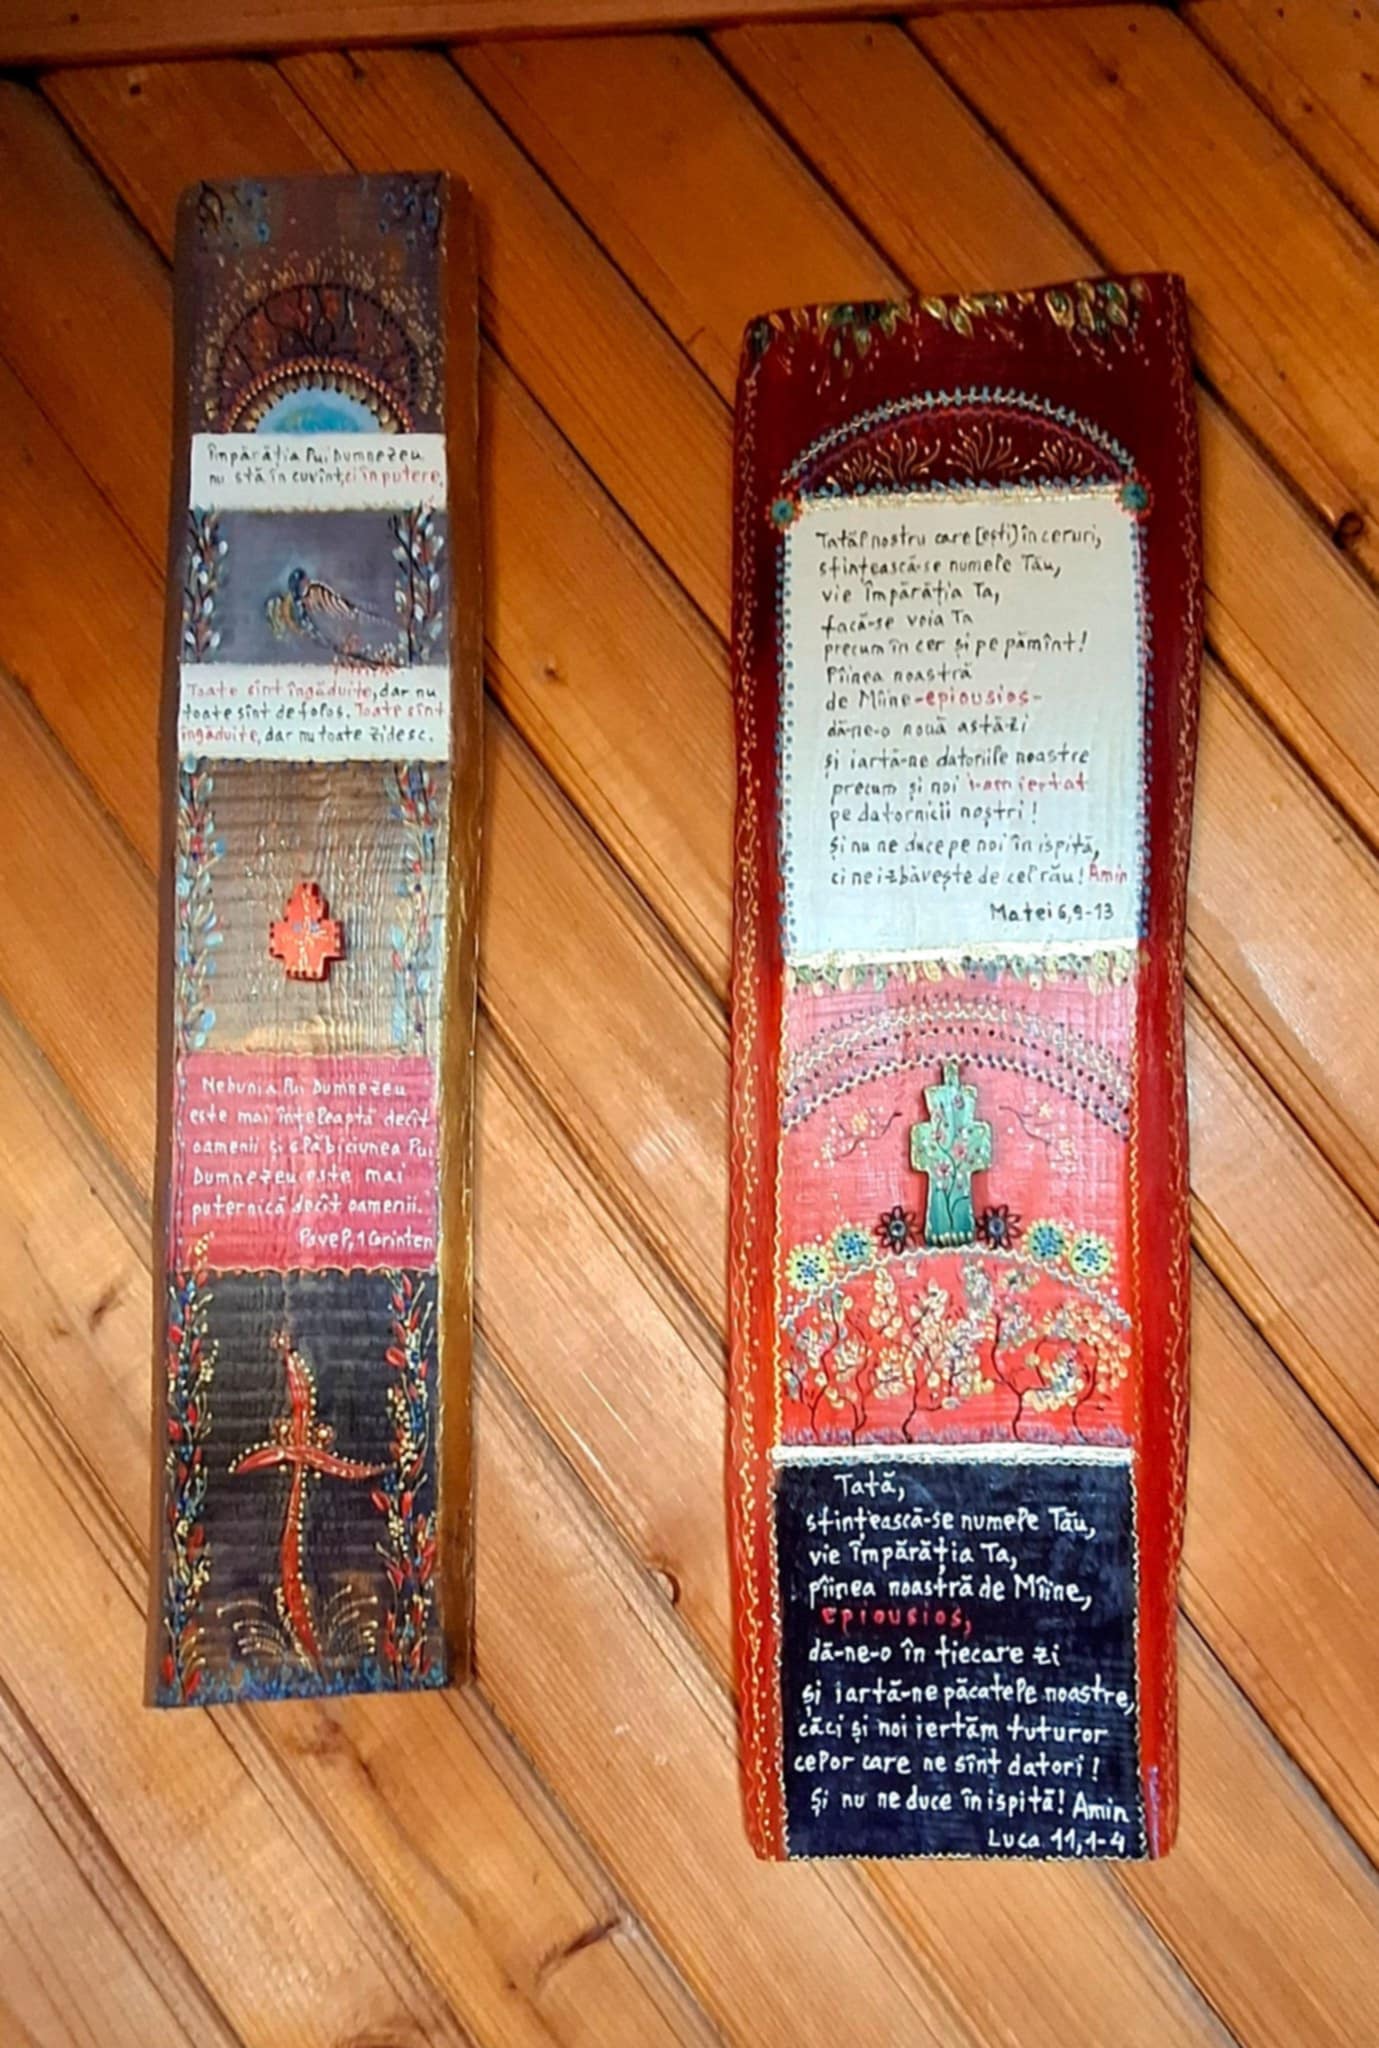 Împărăția lui Dumnezeu
nu stă în cuvînt, ci în putere,
Toate sînt îngăduite, dar nu
toate sînt de folos. Toate sînt
îngăduite, dar nu toate zidesc.
Nebunia lui Dumnezeu
este mai înțeleaptă decît
oamenii și slăbiciunea lui
Dumnezeu este mai
puternică decît oamenii.
Pavel, 1 Corinteni
Tatăl nostru care [ești] în ceruri,
sfințească-se numele Tău,
vie Împărăția Ta,
facă-se voia Ta
precum în cer și pe pămînt!
Pîinea noastră
de Mîine-epiousios-
dă-ne-o nouă astăzi
și iartă-ne datoriile noastre
precum și noi i-am iertat
pe datornicii noștri!
Și nu ne duce pe noi în ispită,
ci ne izbăvește de cel rău! Amin
Matei 6,9-13
Tată,
sfințească-se numele Tău,
vie Împărăția Ta,
pîinea noastră de Mîine,
epiousios,
dă-ne-o în fiecare zi
și iartă-ne păcatele noastre,
căci și noi iertăm tuturor
celor care ne sînt datori!
Și nu ne duce în ispită! Amin
Luca 11,1-4